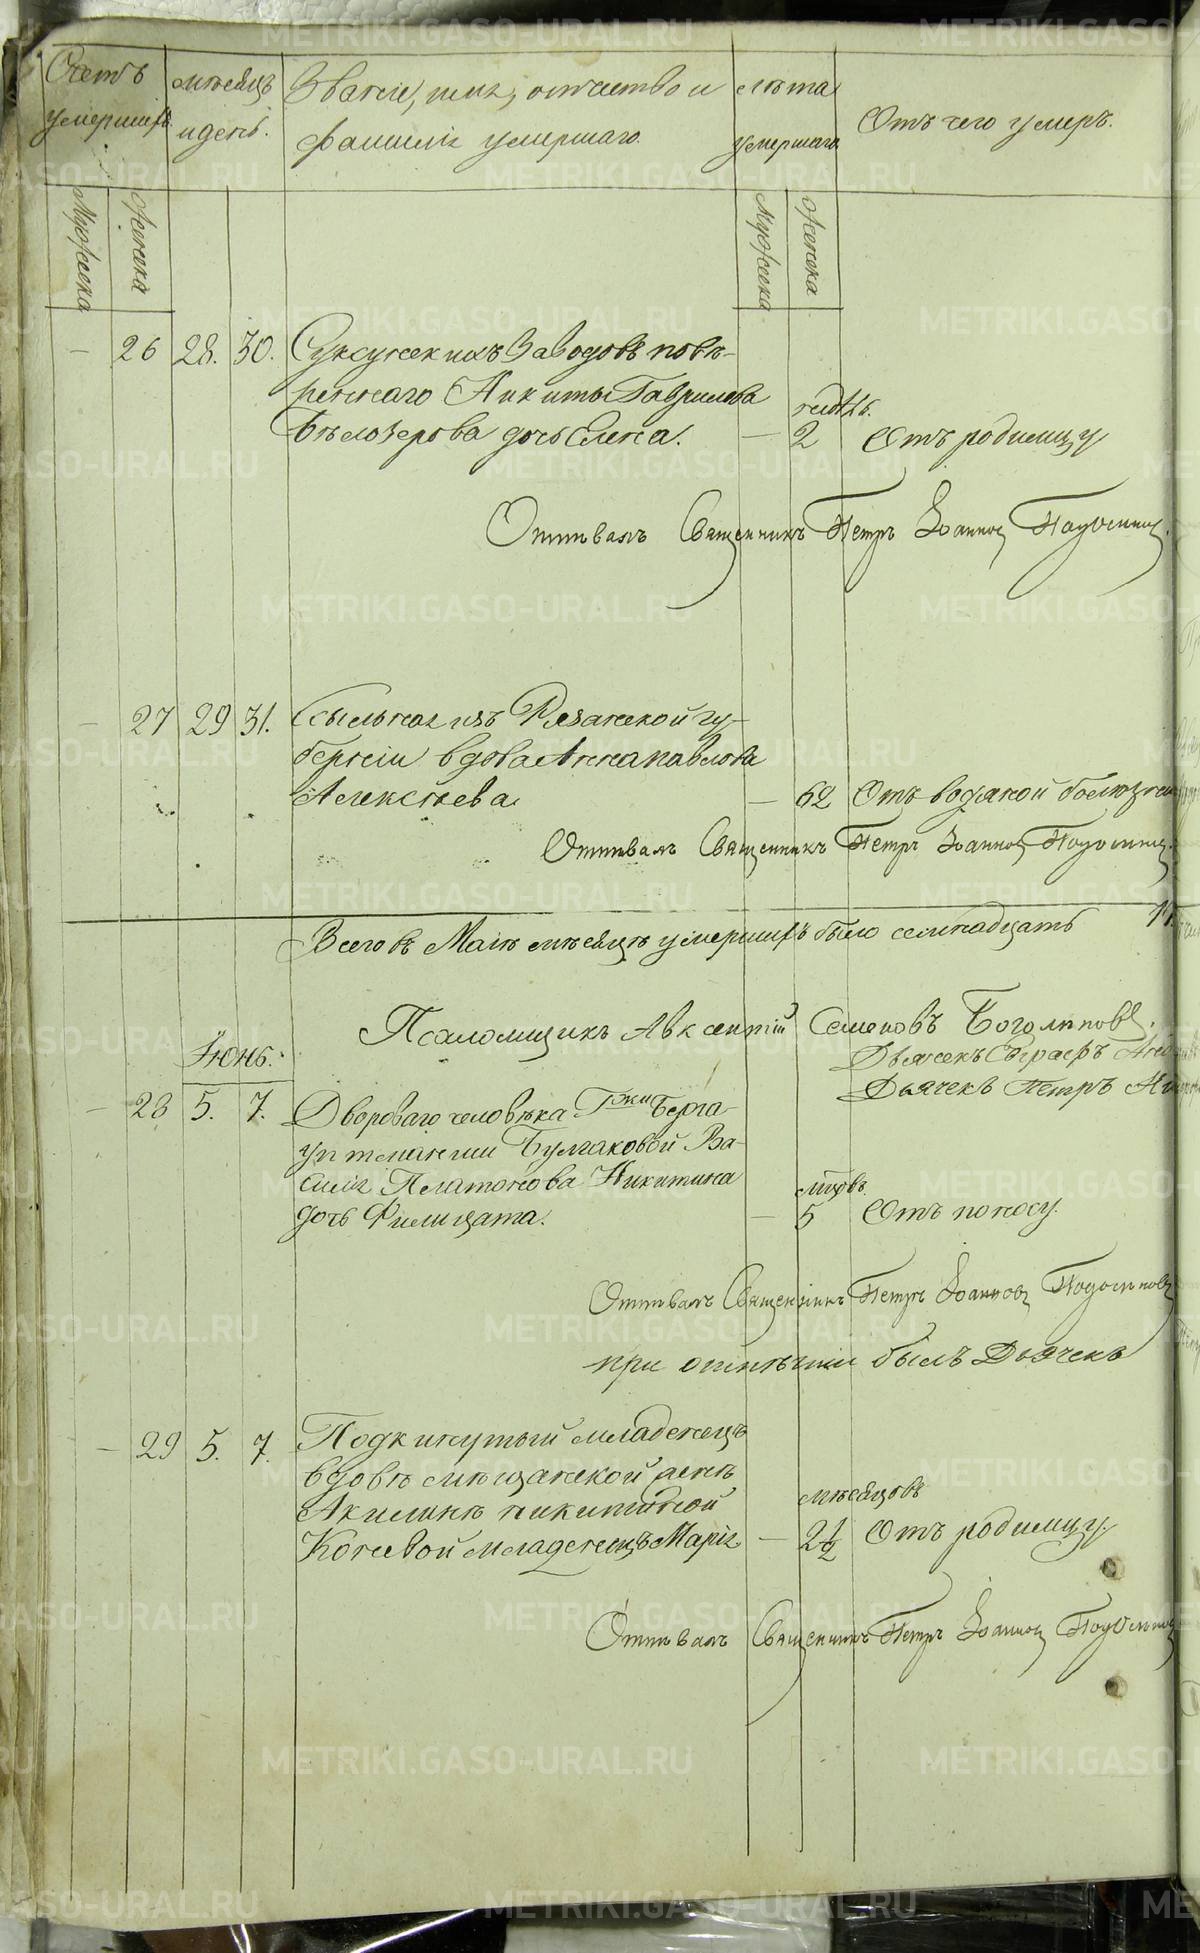 Счетъ умершихъ
мѣсяцъ и день.
Званіе, имя, отчество и
фамилія умершаго.
лѣта умершаго
Отъ чего умеръ.
Мужеска
Женска
Мужеска
Женска
— 26 28. 30. Суксунскихъ Заводовъ повѣ-
реннаго Никиты Гаврилова
недѣль.
Бѣлозерова дочь Елена. — 2 Отъ родимцу
Отпѣвалъ Священникъ Петръ Іоанновъ
— 27 29 31. Ссыльная изъ Рязанской гу-
берніи вдова Анна Павлова
Алексѣева — 62 Отъ водяной болезни
Отпѣвалъ Священникъ Петръ Іоанновъ
Всего въ Маіѣ мѣсяцѣ умершихъ было семнадцать 17.
Псаломщикъ Авксентій Семеновъ Боголѣповъ.
Дьячекъ
Іюнь.
Дьячекъ Петръ
— 28 5. 7. Двороваго человѣка Гжи Берга-
уптманши Булгаковой Ва-
силія Платонова Никитина
мцовъ.
дочь Филицата. — 5 Отъ поносу.
Отпѣвалъ Священникъ Петръ Іоанновъ
при отпѣтіи былъ Дьячекъ
— 29 5. 7. Подкинутый младенецъ
вдовѣ мѣщанской женѣ
мѣсяцовъ
Акилинѣ Никитиной
младенецъ Марія — 2½ Отъ родимцу.
Отпѣвалъ Священникъ Петръ Іоанновъ
METRIKI.GASO-URAL.RU